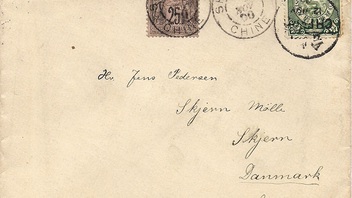 25
CHINE
CHINE
CHINE
Hr Jens Pedersen
Skjern Mölle
Skjern
Danmark